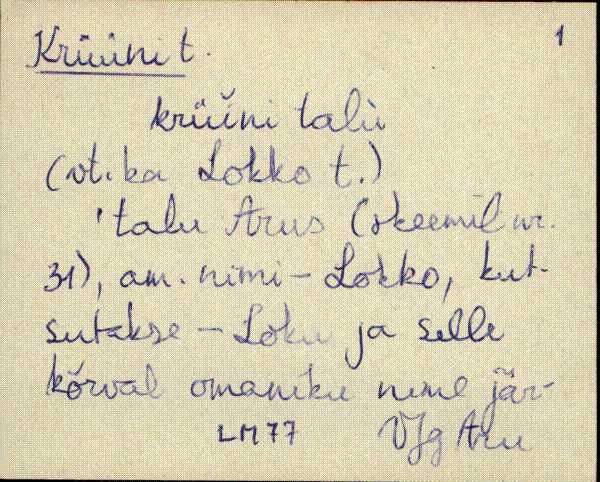 1
Krüüni t.
krüǖni talù
(vt. ka Lokko t.)
'talu Arus (skeemil nr.
31), am. nimi - Lokko, kut-
sutakse - Loku ja selle
kõrval omaniku nime jär-
LM77 VJg Aru